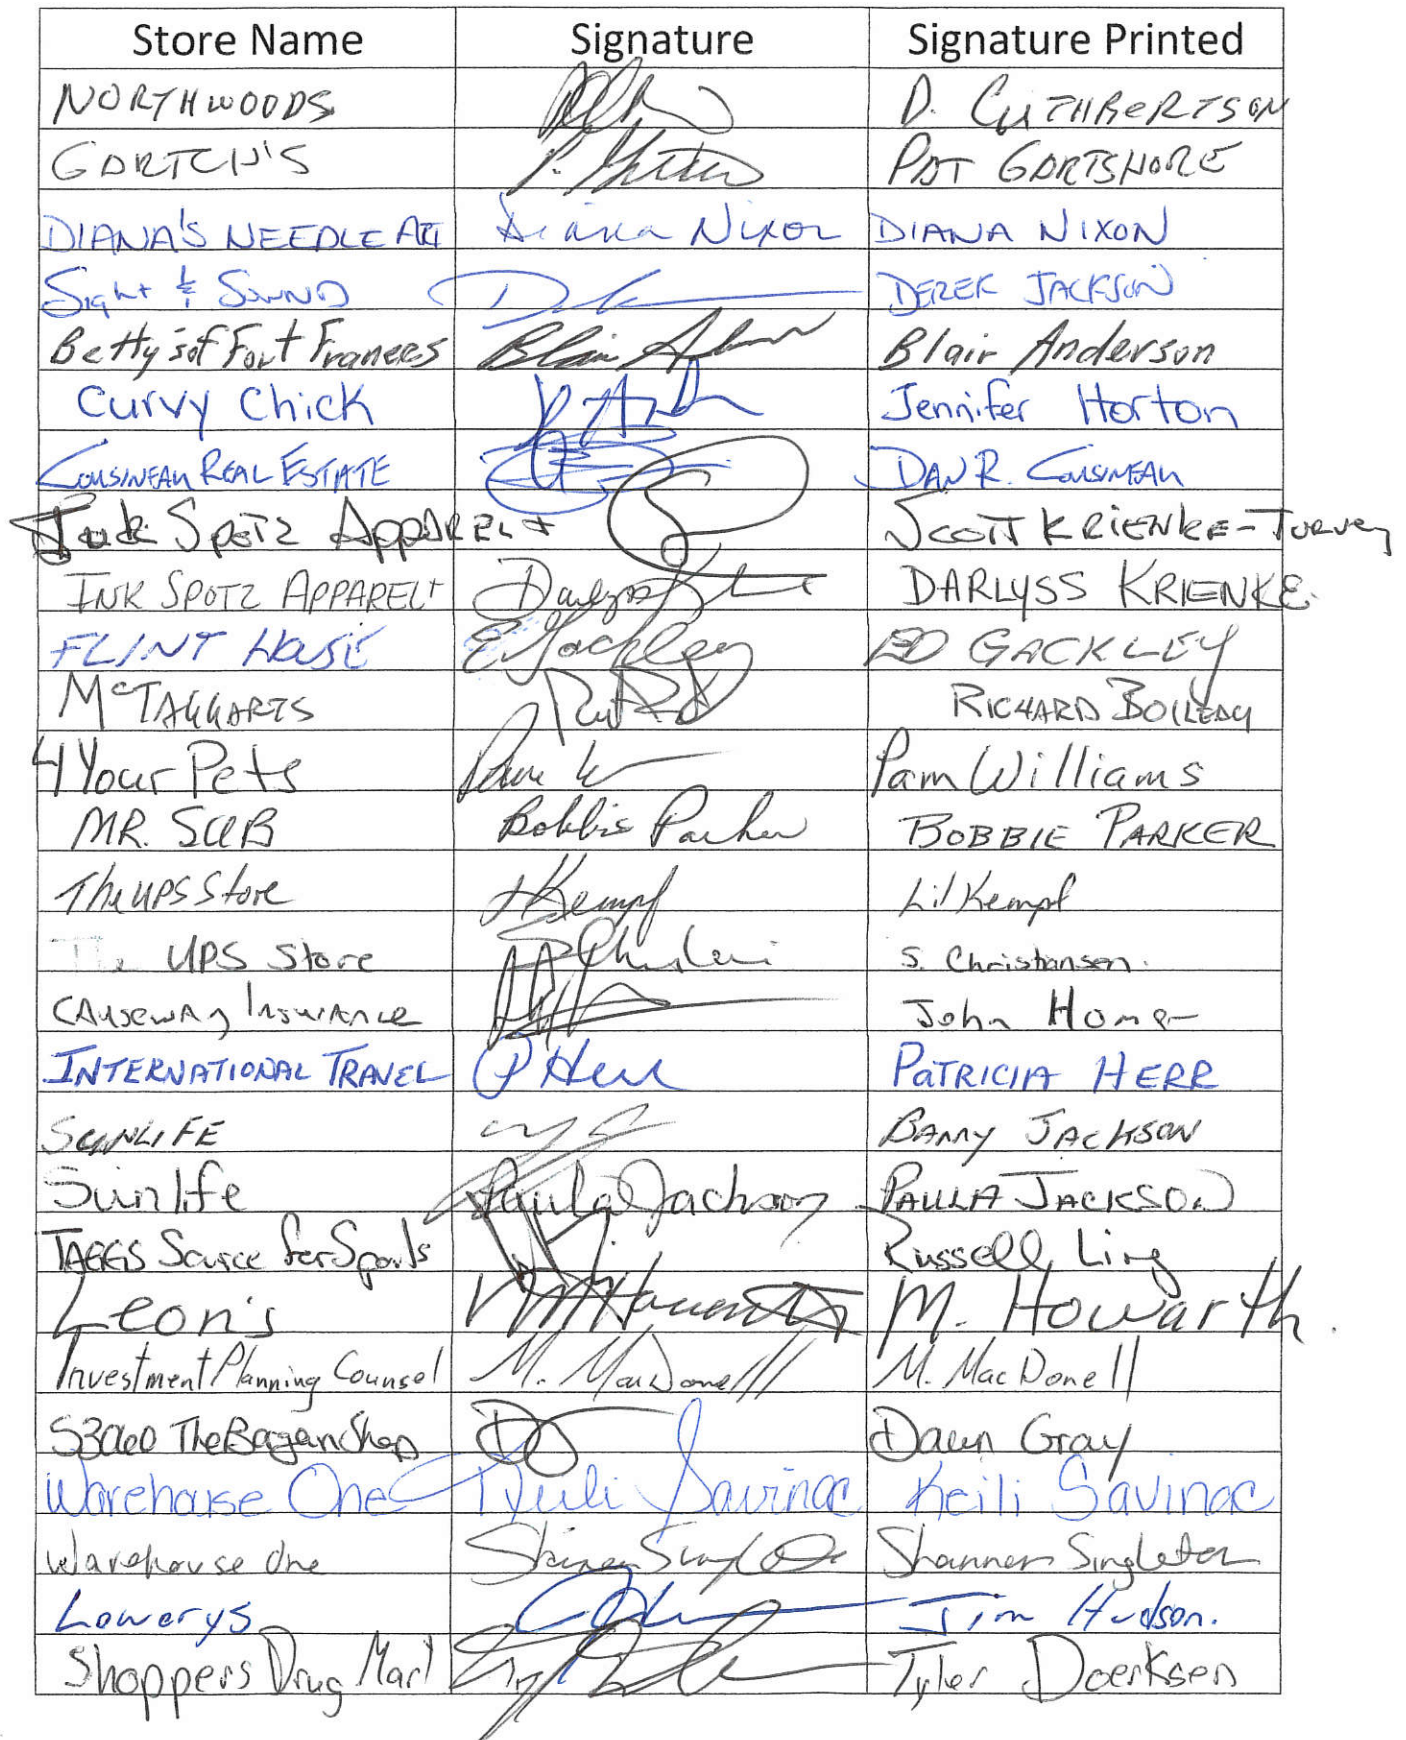 Store Name Signature Signature Printed
NORTHWOODS D. CUTHBERTSON
P. PAT GARTSHORE
DIANA'S NEEDLE ART Diana Nixon DIANA NIXON
Sight & Sound DEREK JACKSON
Betty's of Fort Frances Blair Anderson Blair Anderson
Curvy Chick Jennifer Horton
COUSINEAU REAL ESTATE DAN R. COUSINEAU
Ink Spotz Apparel + SCOTT KRIENKE-TURVEY
INK SPOTZ APPAREL+ Darlyss DARLYSS KRIENKE
FLINT HOUSE E Gackley ED GACKLEY
McTAGGARTS RICHARD BOILEAU
4 Your Pets Pam W Pam Williams
MR. SUB Bobbie Parker BOBBIE PARKER
The UPS Store Kempf Lil Kempf
The UPS Store S. Christiansen.
CAUSEWAY INSURANCE John Homer
INTERNATIONAL TRAVEL P Herr PATRICIA HERR
SUNLIFE BARRY JACKSON
Sunlife Paula Jackson PAULA JACKSON
TAGGS Source for Sports Russell Ling
Leon's M Howarth M. Howarth
Investment Planning Counsel M. MacDonell M. MacDonell
The Bargain Shop DG Dawn Gray
Warehouse One Savinac Keili Savinac
Warehouse One Shannon Singleton
Lowerys Jim Hudson.
Shoppers Drug Mart Tyler Doerksen